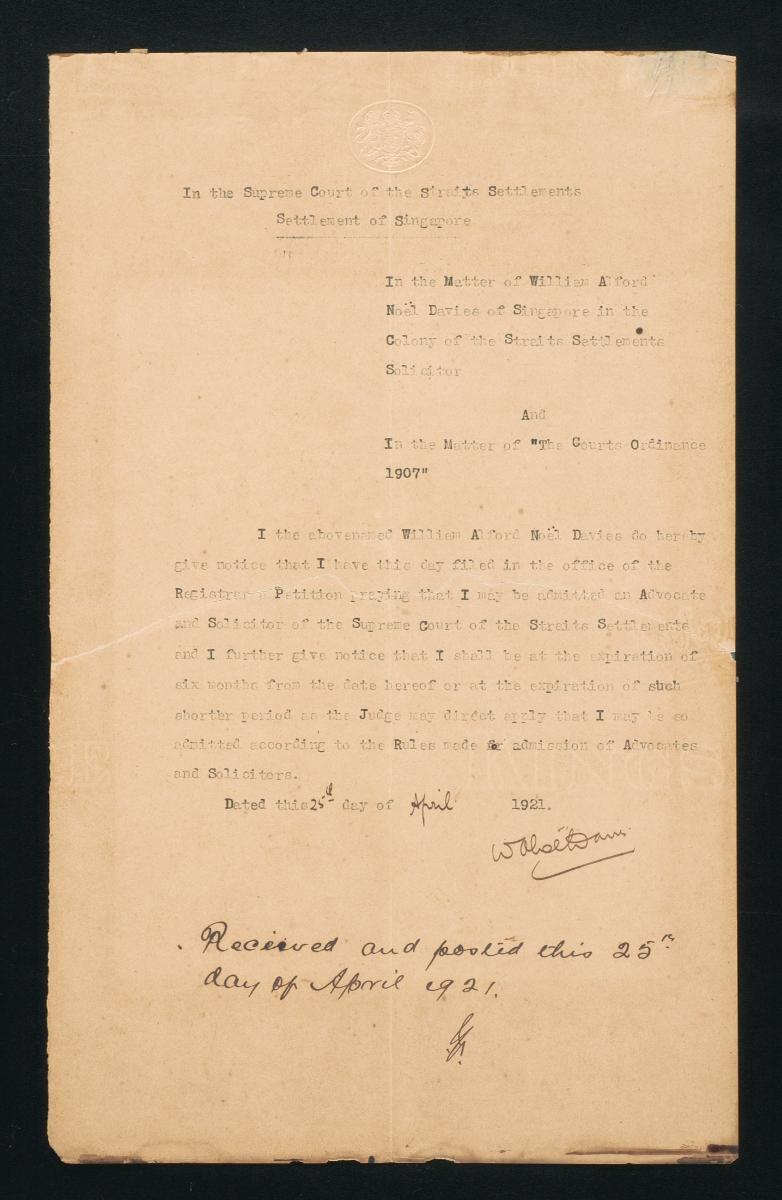 In the Supreme Court of the Straits Settlements
Settlement of Singapore
In the Matter of William Alford
Noël Davies of Singapore in the
Colony of the Straits Settlements
Solicitor
And
In the Matter of "The Courts Ordinance
1907"
I the abovenamed William Alford Noël Davies do hereby
give notice that I have this day filed in the office of the
Registrar a Petition praying that I may be admitted an Advocate
and Solicitor of the Supreme Court of the Straits Settlements
and I further give notice that I shall be at the expiration of
six months from the date hereof or at the expiration of such
shorter period as the Judge may direct apply that I may be so
admitted according to the Rules made for admission of Advocates
and Solicitors.
Dated this 25th day of April 1921.
Received and posted this 25th
day of April 1921.